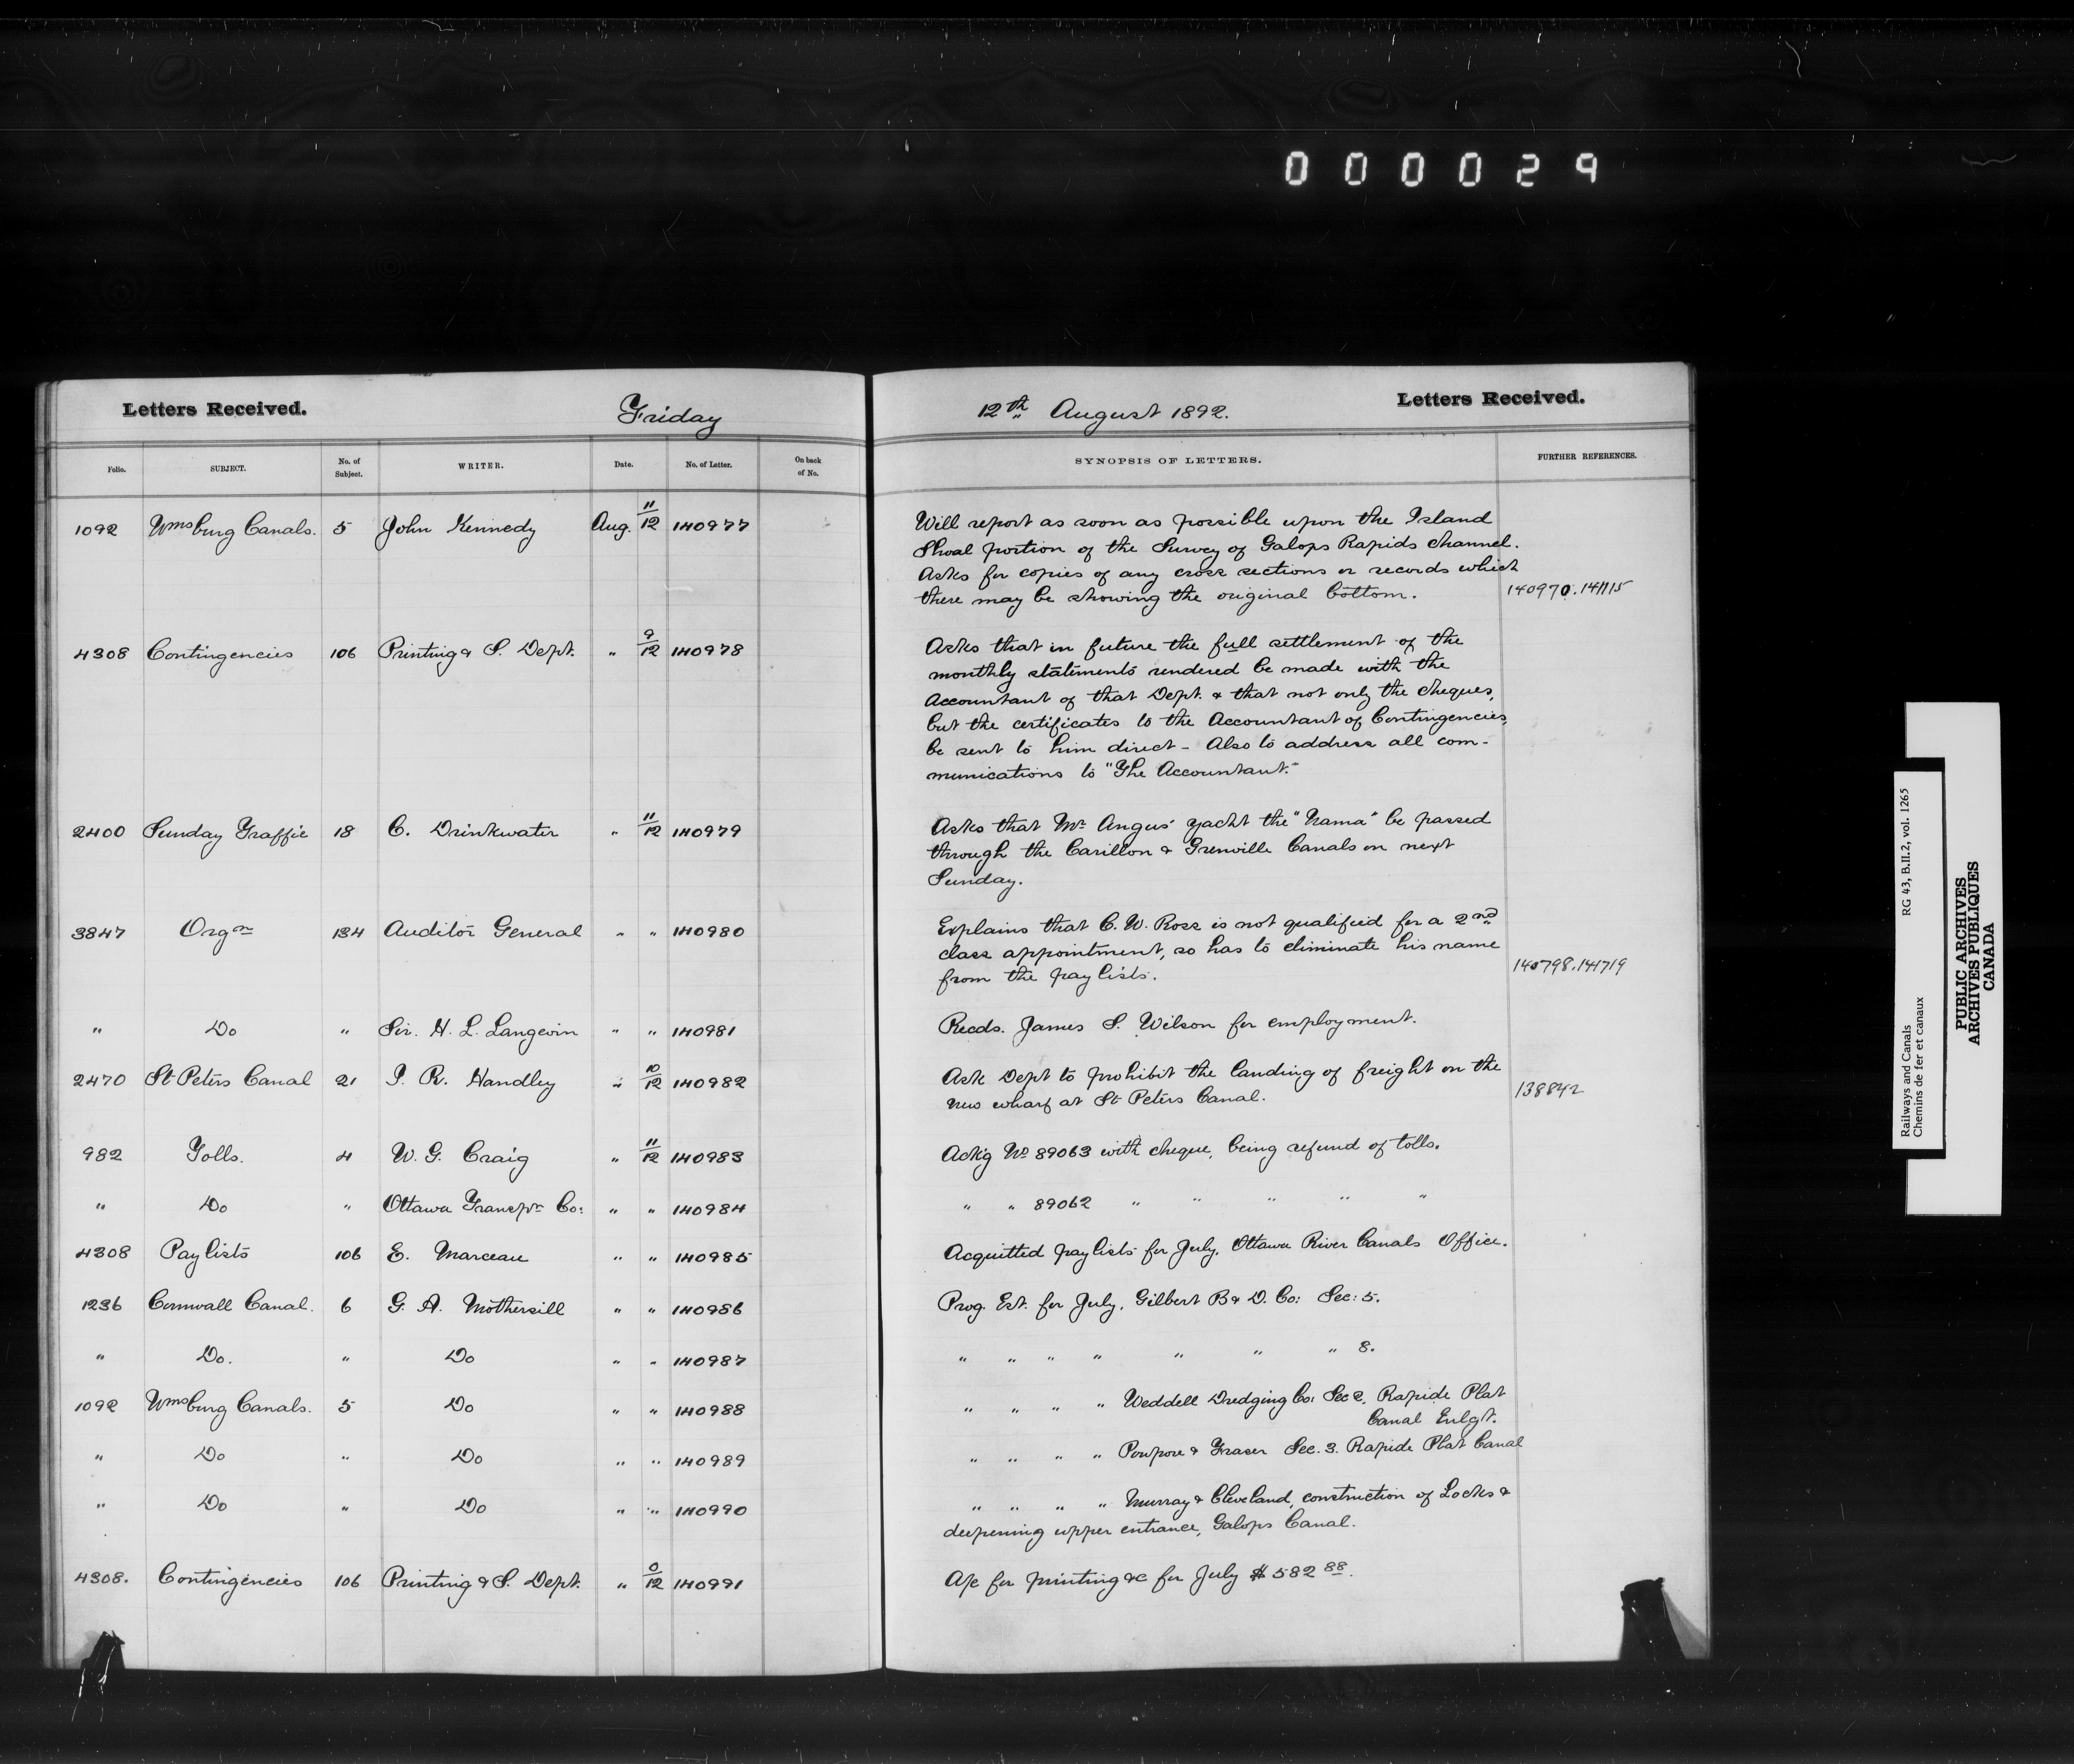 000029
Letters Received. Friday 12th August 1892. Letters Received.
Folio. SUBJECT. No. of Subject. WRITER. Date. No. of Letter. On back of No. SYNOPSIS OF LETTERS. FURTHER REFERENCES.
1092 Wmsburg Canals. 5 John Kennedy Aug. 11/12 140977 Will report as soon as possible upon the Island
Shoal portion of the Survey of Galops Rapids Channel.
Asks for copies of any cross sections or records which
there may be showing the original bottom. 140970.141115
4308 Contingencies 106 Printing & S. Dept. " 9/12 140978 Asks that in future the full settlement of the
monthly statements rendered be made with the
Accountant of that Dept. & that not only the cheques,
but the certificates to the Accountant of Contingencies,
be sent to him direct - Also to address all com-
munications to "The Accountant."
2400 Sunday Traffic 18 C. Drinkwater " 11/12 140979 Asks that Mr Angus' yacht the "Nama" be passed
through the Carillon & Grenville Canals on next
Sunday.
3847 Orgn 134 Auditor General " " 140980 Explains that C. W. Ross is not qualified for a 2nd
class appointment, so has to eliminate his name
from the pay lists. 140798.141719
" Do " Sir. H. L. Langevin " " 140981 Recds. James S. Wilson for employment.
2470 St Peters Canal 21 J. R. Handley " 10/12 140982 Ask Dept to prohibit the landing of freight on the
new wharf at St Peters Canal. 138842
982 Tolls. 4 W. G. Craig " 11/12 140983 Ackg No 89063 with cheque, being refund of tolls.
" Do " Ottawa Transpn Co: " " 140984 " " 89062 " " " " "
4308 Pay lists 106 E. Marceau " " 140985 Acquitted pay lists for July, Ottawa River Canals Office.
1236 Cornwall Canal. 6 G. A. Mothersill " " 140986 Prog. Est. for July, Gilbert B & D. Co: Sec: 5.
" Do. " Do " " 140987 " " " " " " " 8.
1092 Wmsburg Canals. 5 Do " " 140988 " " " " Weddell Dredging Co: Sec 2, Rapide Plat
Canal Enlgt.
" Do " Do " " 140989 " " " " Poupore & Fraser Sec. 3. Rapide Plat Canal
" Do " Do " " 140990 " " " " Murray & Cleveland, construction of Locks &
deepening upper entrance, Galops Canal.
4308. Contingencies 106 Printing & S. Dept. " 0/12 140991 A/c for printing &c for July $582 88.
Railways and Canals RG 43, B.II.2, vol. 1265
Chemins de fer et canaux
PUBLIC ARCHIVES
ARCHIVES PUBLIQUES
CANADA